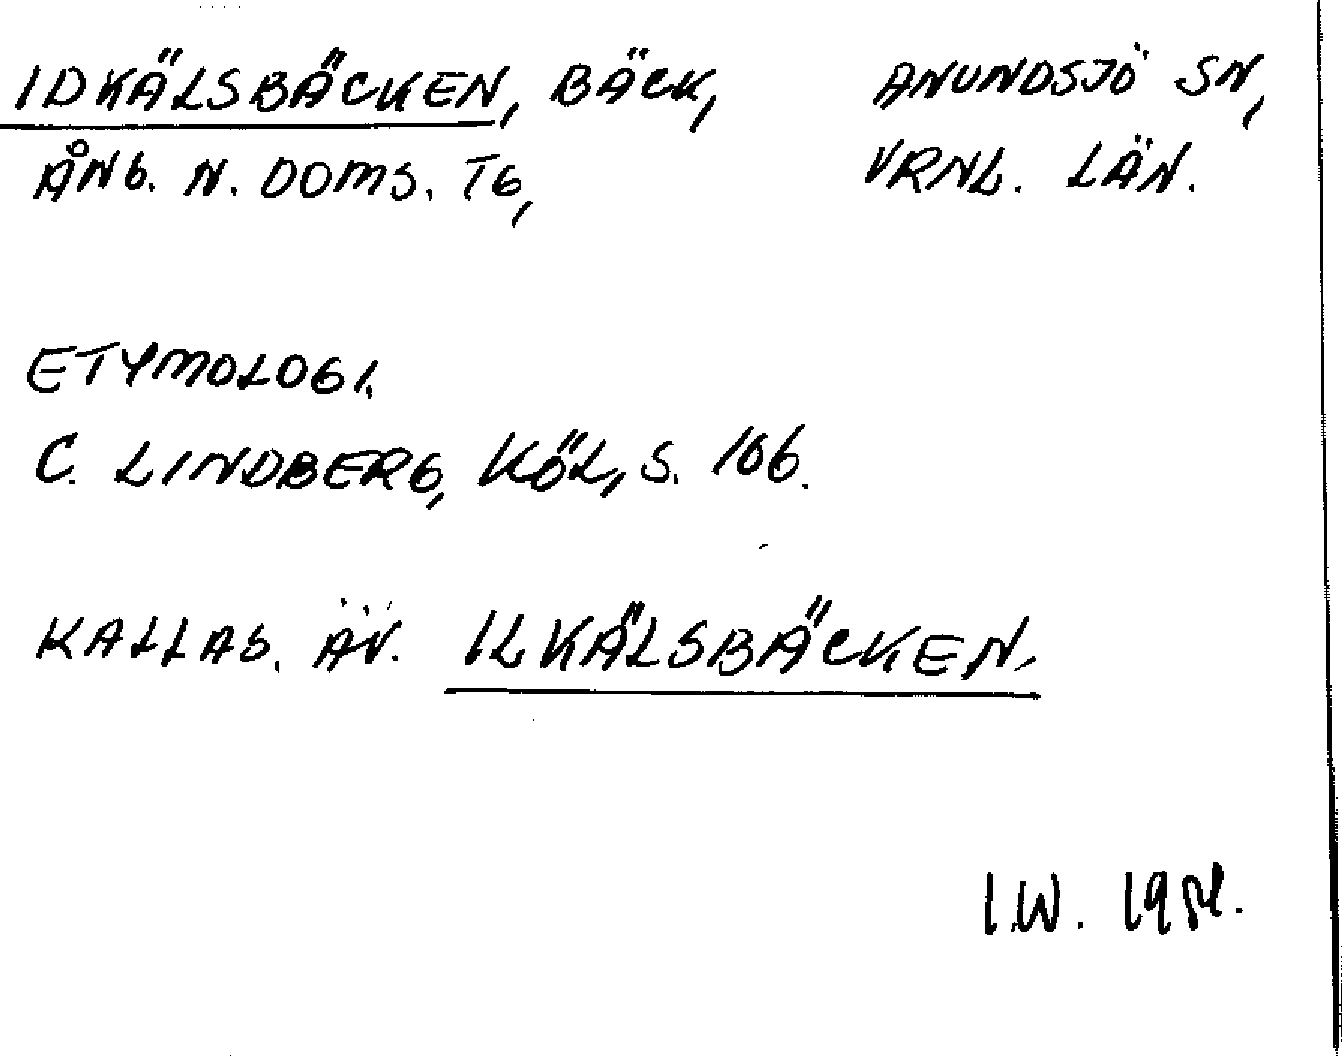 IDKÄLSBÄCKEN, BÄCK, ANUNDSJÖ SN,
ÅNG. N. DOMS. TG, VRNL. LÄN.
ETYMOLOGI.
C. LINDBERG, KÖL, S. 106.
KALLAS. ÄV. ILKÄLSBÄCKEN.
I.W.